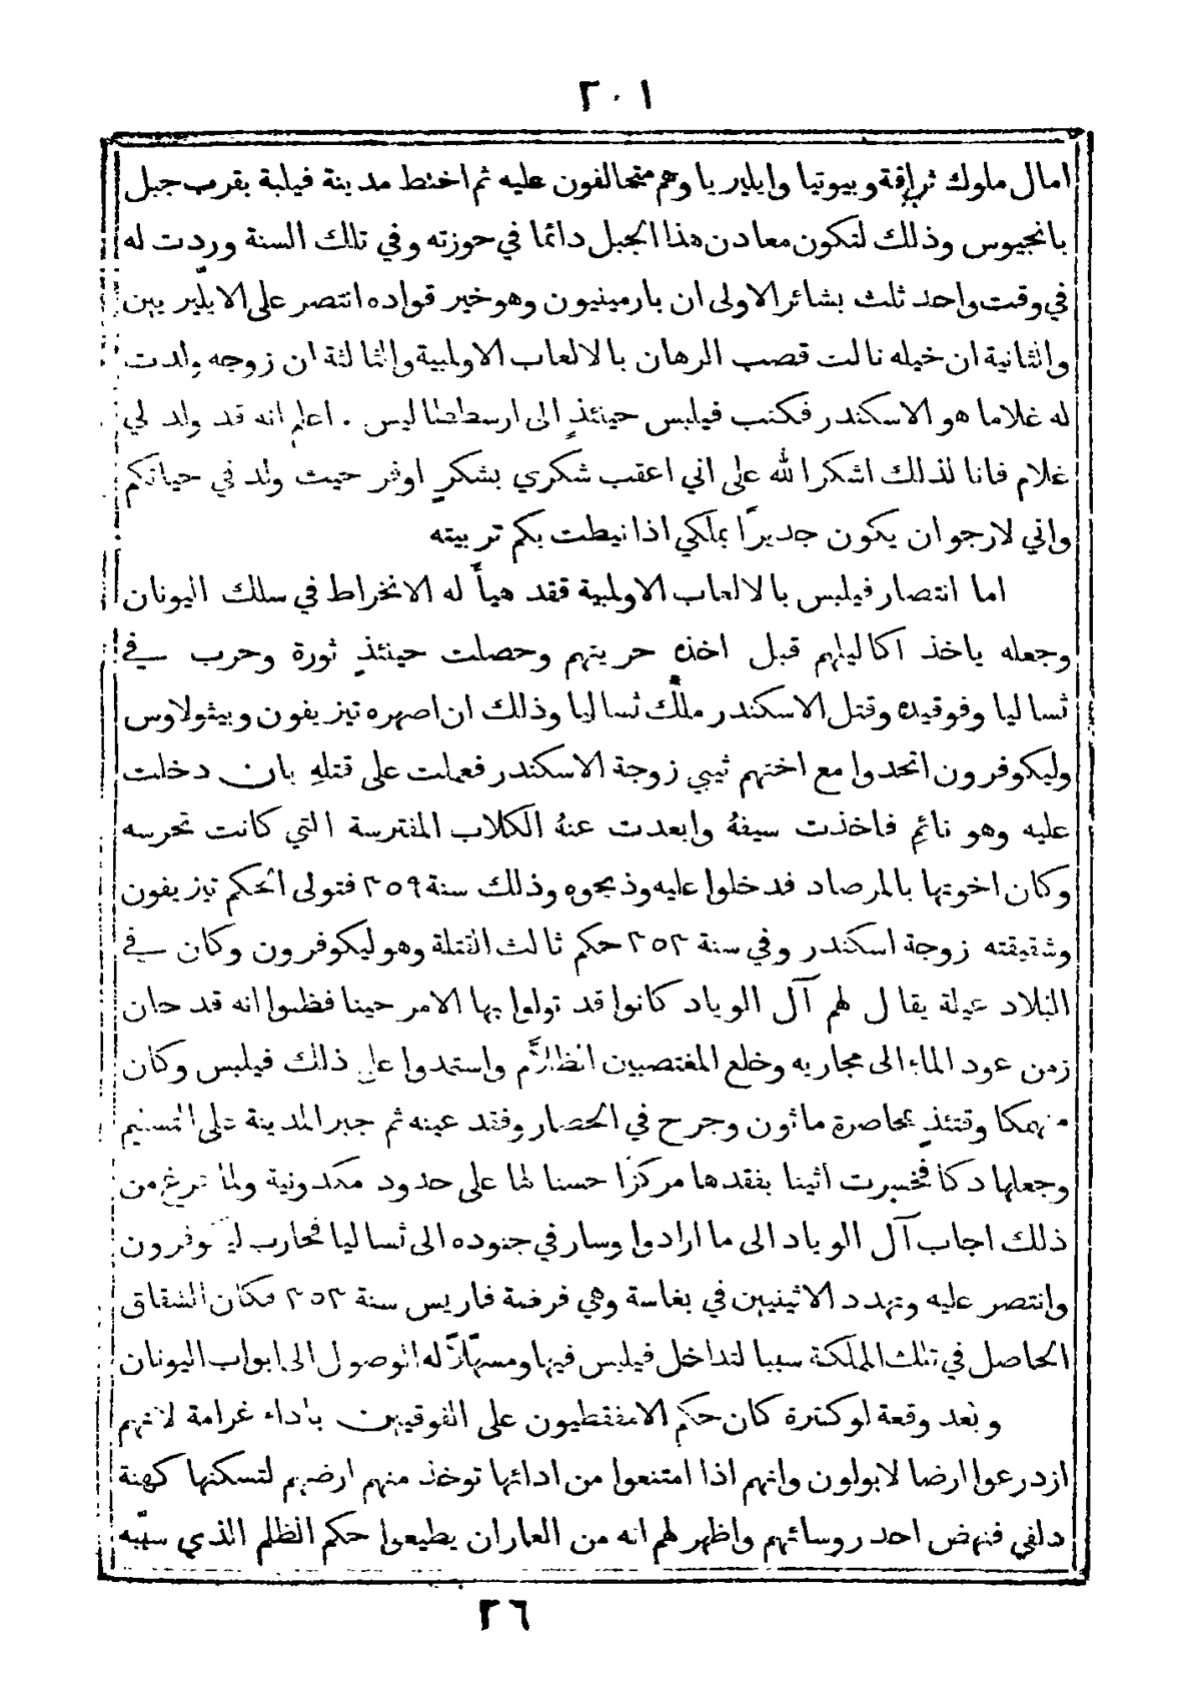 ٢٠١
امال ملوك ثراقة وبيوتيا وايليريا وهم متحالفون عليه ثم اختط مدينة فيلبة بقرب جبل
بانجيوس وذلك لتكون معادن هذا الجبل دائما في حوزته وفي تلك السنة وردت له
في وقت واحد ثلث بشائر الاولى ان بارمينيون وهو خير قواده انتصر على الايليريين
والثانية ان خيله نالت قصب الرهان بالالعاب الاولمبية والثالثة ان زوجه ولدت
له غلاما هو الاسكندر فكتب فيلبس حينئذٍ الى ارسططاليس . اعلم انه قد ولد لي
غلام فانا لذلك اشكر الله على اني اعقب شكري بشكرٍ اوفر حيث ولد في حياتكم
واني لارجو ان يكون جديرًا بملكي اذا نيطت بكم تربيته
اما انتصار فيلبس بالالعاب الاولمبية فقد هيأ له الانخراط في سلك اليونان
وجعله ياخذ اكاليلهم قبل اخذه حريتهم وحصلت حينئذٍ ثورة وحرب في
ثساليا وفوقيده وقتل الاسكندر ملك ثساليا وذلك ان اصهره تيزيفون وبيثولاوس
وليكوفرون اتحدوا مع اختهم ثيبي زوجة الاسكندر فعملت على قتلهِ بان دخلت
عليه وهو نائم فاخذت سيفهُ وابعدت عنهُ الكلاب المفترسة التي كانت تحرسه
وكان اخوتها بالمرصاد فدخلوا عليه وذبحوه وذلك سنة ٣٥٩ فتولى الحكم تيزيفون
وشقيقته زوجة اسكندر وفي سنة ٣٥٣ حكم ثالث القتلة وهو ليكوفرون وكان في
البلاد عيلة يقال لهم آل الوياد كانوا قد تولوا بها الامر حينا فظنوا انه قد حان
زمن عود الماء الى مجاريه وخلع المغتصبين الظلاَّم واستمدوا على ذلك فيلبس وكان
منهمكا وقتئذٍ بمحاصرة ماثون وجرح في الحصار وفقد عينه ثم جبر المدينة على التسليم
وجعلها دكا فخسرت اثينا بفقدها مركزًا حسنا لها على حدود مكدونية ولما فرغ من
ذلك اجاب آل الوياد الى ما ارادوا وسار في جنوده الى ثساليا فحارب ليكوفرون
وانتصر عليه وتهدد الاثينيين في بغاسة وهي فرضة فاريس سنة ٣٥٣ فكان الشقاق
الحاصل في تلك المملكة سببا لتداخل فيلبس فيها ومسهّلاً له الوصول الى ابواب اليونان
وبعد وقعة لوكترة كان حكم الامفقطيون على الفوقيين باداء غرامة لانهم
ازدرعوا ارضا لابولون وانهم اذا امتنعوا من ادائها توخذ منهم ارضهم لتسكنها كهنة
دلفي فنهض احد روسائهم واظهر لهم انه من العار ان يطيعوا حكم الظلم الذي سببه
٢٦